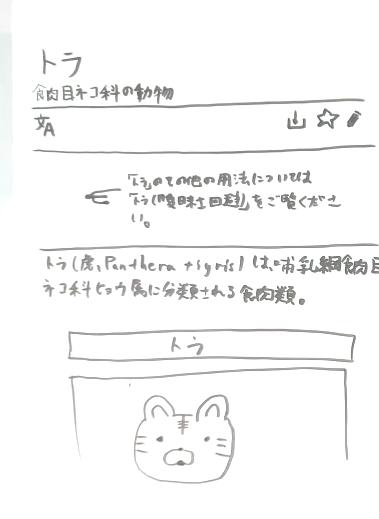 トラ
食肉目ネコ科の動物
文A
「トラ」のその他の用法については
「トラ (曖昧さ回避)」をご覧くださ
い。
トラ(虎、Panthera tigris) は、哺乳綱食肉目
ネコ科ヒョウ属に分類される食肉類。
トラ